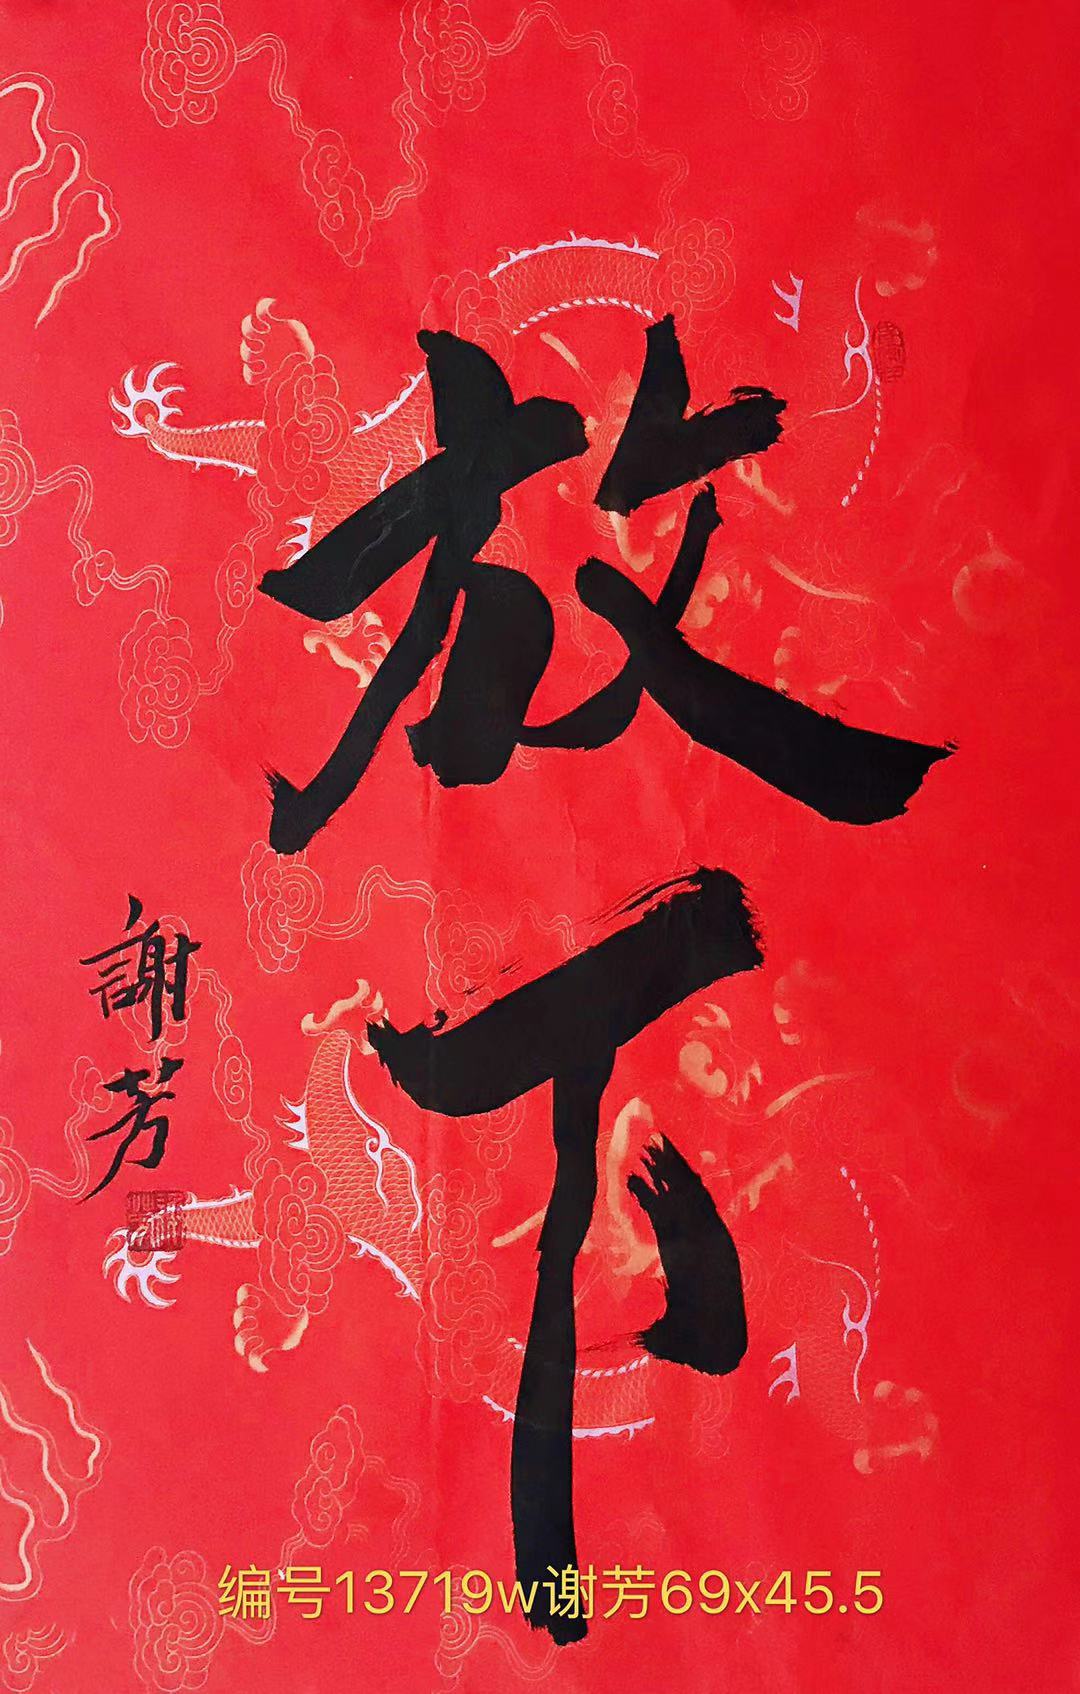 放下
謝芳
编号13719w谢芳69x45.5